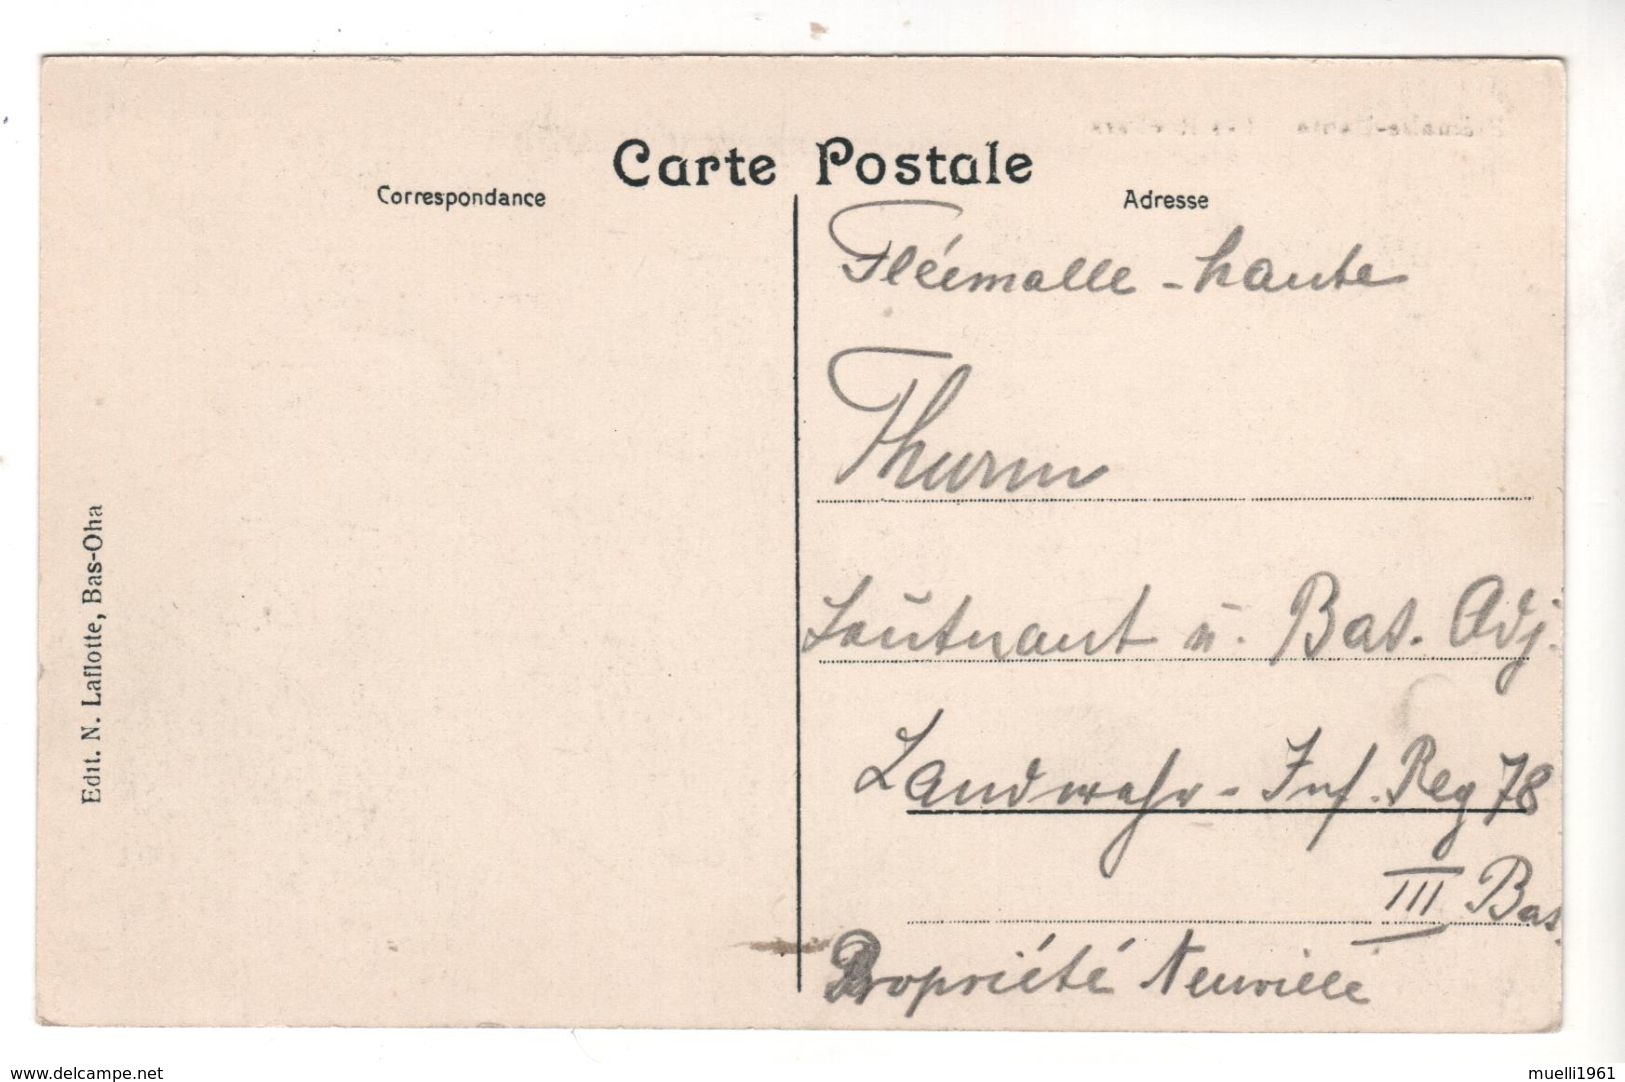 Carte Postale
Correspondance
Adresse
Fléemalle-haute
Thurm
Leutnant u. Bat. Adj.
Landwehr-Inf. Reg 78
III Bat.
Propriété Neuville
Edit. N. Laflotte, Bas-Oha
www.delcampe.net
muelli1961